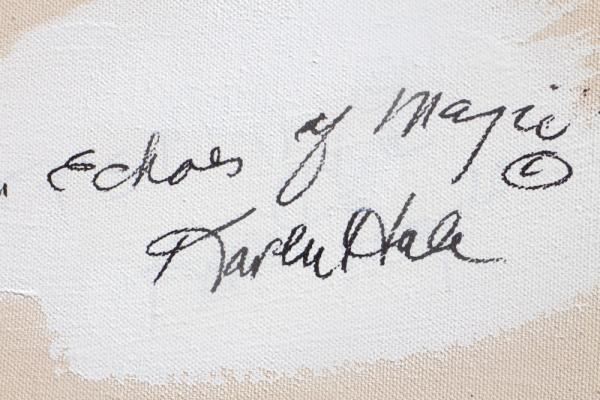 Echoes of Magic
©
Karen Hale